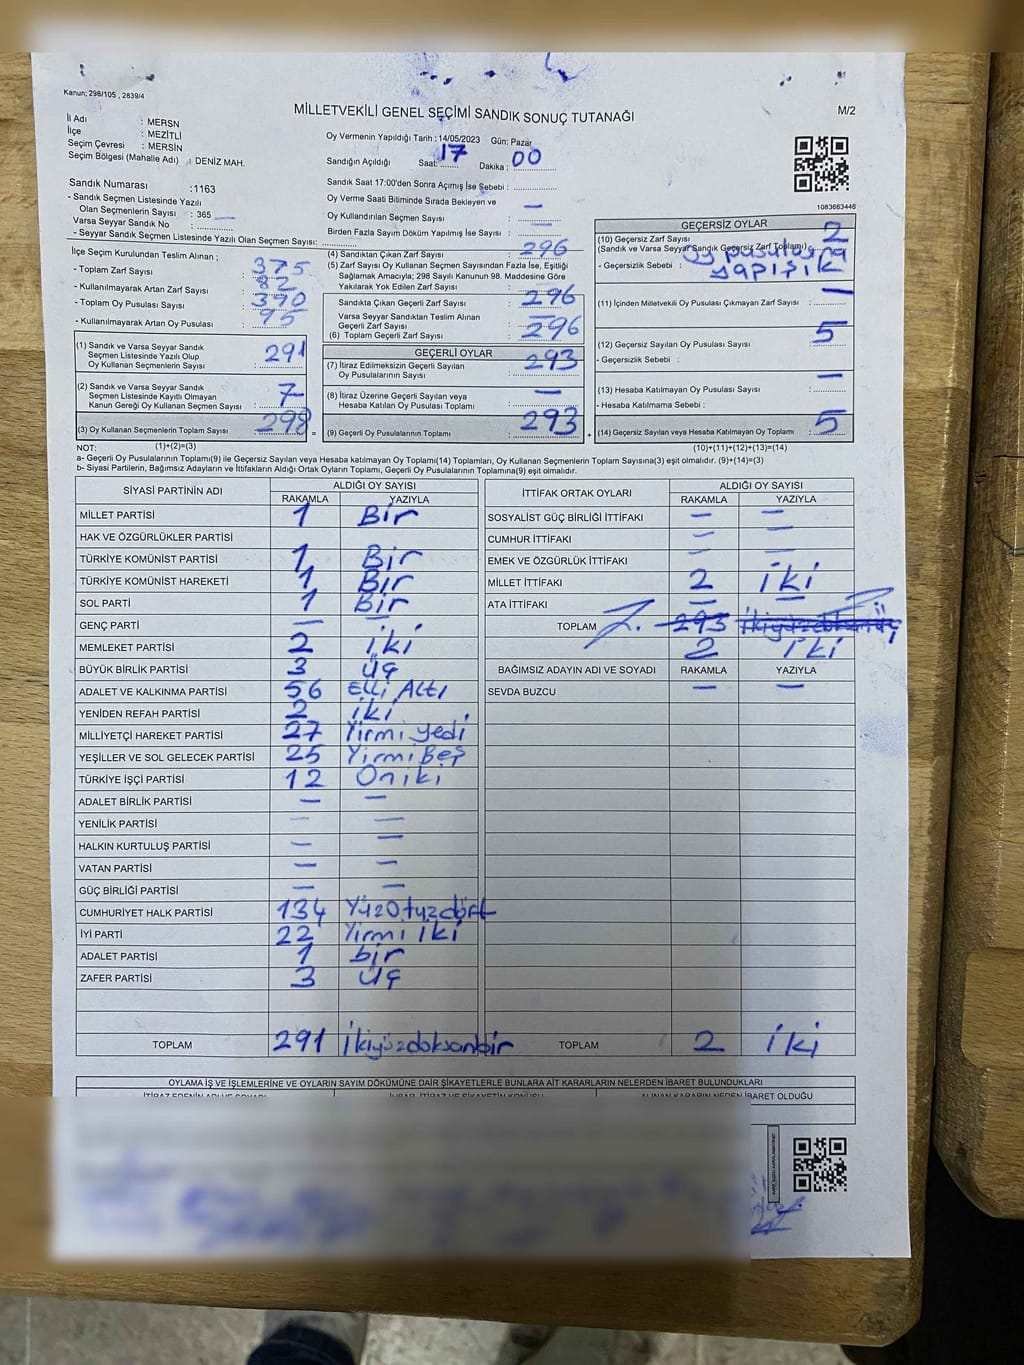 Kanun; 298/105 , 2839/4
MİLLETVEKİLİ GENEL SEÇİMİ SANDIK SONUÇ TUTANAĞI
M/2
İl Adı : MERSN
İlçe : MEZİTLİ
Seçim Çevresi : MERSİN
Seçim Bölgesi (Mahalle Adı) : DENİZ MAH.
Oy Vermenin Yapıldığı Tarih : 14/05/2023 Gün: Pazar
Sandığın Açıldığı Saat: 17 Dakika : 00
Sandık Saat 17:00'den Sonra Açımış İse Sebebi :
Oy Verme Saati Bitiminde Sırada Bekleyen ve
Oy Kullandırılan Seçmen Sayısı : —
Birden Fazla Sayım Döküm Yapılmış İse Sayısı : —
1083663446
Sandık Numarası : 1163
- Sandık Seçmen Listesinde Yazılı
Olan Seçmenlerin Sayısı : 365
Varsa Seyyar Sandık No :
- Seyyar Sandık Seçmen Listesinde Yazılı Olan Seçmen Sayısı:
İlçe Seçim Kurulundan Teslim Alınan ;
- Toplam Zarf Sayısı : 375
- Kullanılmayarak Artan Zarf Sayısı : 82
- Toplam Oy Pusulası Sayısı : 370
- Kullanılmayarak Artan Oy Pusulası : 95
(1) Sandık ve Varsa Seyyar Sandık
Seçmen Listesinde Yazılı Olup
Oy Kullanan Seçmenlerin Sayısı : 291
(2) Sandık ve Varsa Seyyar Sandık
Seçmen Listesinde Kayıtlı Olmayan
Kanun Gereği Oy Kullanan Seçmen Sayısı : 7
(3) Oy Kullanan Seçmenlerin Toplam Sayısı : 298
(4) Sandıktan Çıkan Zarf Sayısı : 296
(5) Zarf Sayısı Oy Kullanan Seçmen Sayısından Fazla İse, Eşitliği
Sağlamak Amacıyla; 298 Sayılı Kanunun 98. Maddesine Göre
Yakılarak Yok Edilen Zarf Sayısı :
Sandıkta Çıkan Geçerli Zarf Sayısı : 296
Varsa Seyyar Sandıktan Teslim Alınan
Geçerli Zarf Sayısı : —
(6) Toplam Geçerli Zarf Sayısı : 296
GEÇERLİ OYLAR
(7) İtiraz Edilmeksizin Geçerli Sayılan
Oy Pusulalarının Sayısı : 293
(8) İtiraz Üzerine Geçerli Sayılan veya
Hesaba Katılan Oy Pusulası Toplamı : —
(9) Geçerli Oy Pusulalarının Toplamı : 293
GEÇERSİZ OYLAR
(10) Geçersiz Zarf Sayısı 2
(Sandık ve Varsa Seyyar Sandık Geçersiz Zarf Toplamı)
- Geçersizlik Sebebi : Oy pusulaya
yapışık
(11) İçinden Milletvekili Oy Pusulası Çıkmayan Zarf Sayısı : —
(12) Geçersiz Sayılan Oy Pusulası Sayısı : 5
- Geçersizlik Sebebi :
(13) Hesaba Katılmayan Oy Pusulası Sayısı : —
- Hesaba Katılmama Sebebi :
(14) Geçersiz Sayılan veya Hesaba Katılmayan Oy Toplamı : 5
NOT: (1)+(2)=(3) (10)+(11)+(12)+(13)=(14)
a- Geçerli Oy Pusulalarının Toplamı(9) ile Geçersiz Sayılan veya Hesaba katılmayan Oy Toplamı(14) Toplamları, Oy Kullanan Seçmenlerin Toplam Sayısına(3) eşit olmalıdır. (9)+(14)=(3)
b- Siyasi Partilerin, Bağımsız Adayların ve İttifakların Aldığı Ortak Oyların Toplamı, Geçerli Oy Pusulalarının Toplamına(9) eşit olmalıdır.
SİYASİ PARTİNİN ADI ALDIĞI OY SAYISI
RAKAMLA YAZIYLA
MİLLET PARTİSİ 1 Bir
HAK VE ÖZGÜRLÜKLER PARTİSİ
TÜRKİYE KOMÜNİST PARTİSİ 1 Bir
TÜRKİYE KOMÜNİST HAREKETİ 1 Bir
SOL PARTİ 1 Bir
GENÇ PARTİ — —
MEMLEKET PARTİSİ 2 iki
BÜYÜK BİRLİK PARTİSİ 3 üç
ADALET VE KALKINMA PARTİSİ 56 Elli Altı
YENİDEN REFAH PARTİSİ 2 iki
MİLLİYETÇİ HAREKET PARTİSİ 27 Yirmi yedi
YEŞİLLER VE SOL GELECEK PARTİSİ 25 Yirmi Beş
TÜRKİYE İŞÇİ PARTİSİ 12 Oniki
ADALET BİRLİK PARTİSİ — —
YENİLİK PARTİSİ — —
HALKIN KURTULUŞ PARTİSİ — —
VATAN PARTİSİ — —
GÜÇ BİRLİĞİ PARTİSİ — —
CUMHURİYET HALK PARTİSİ 134 YüzOtuzdört
İYİ PARTİ 22 Yirmi iki
ADALET PARTİSİ 1 bir
ZAFER PARTİSİ 3 üç
TOPLAM 291 ikiyüzdoksanbir
İTTİFAK ORTAK OYLARI ALDIĞI OY SAYISI
RAKAMLA YAZIYLA
SOSYALİST GÜÇ BİRLİĞİ İTTİFAKI — —
CUMHUR İTTİFAKI — —
EMEK VE ÖZGÜRLÜK İTTİFAKI — —
MİLLET İTTİFAKI 2 iki
ATA İTTİFAKI — —
TOPLAM 293 ikiyüzdoksanüç
2 iki
BAĞIMSIZ ADAYIN ADI VE SOYADI RAKAMLA YAZIYLA
SEVDA BUZCU — —
TOPLAM 2 iki
OYLAMA İŞ VE İŞLEMLERİNE VE OYLARIN SAYIM DÖKÜMÜNE DAİR ŞİKAYETLERLE BUNLARA AİT KARARLARIN NELERDEN İBARET BULUNDUKLARI
ALINAN KARARIN NEDEN İBARET OLDUĞU